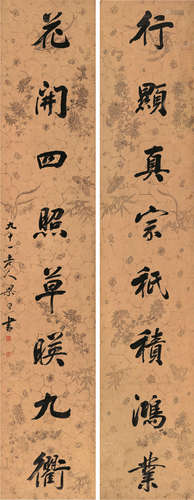 行顯真宗祇積鴻業
花開四照草暎九衢
九十一老人梁同書